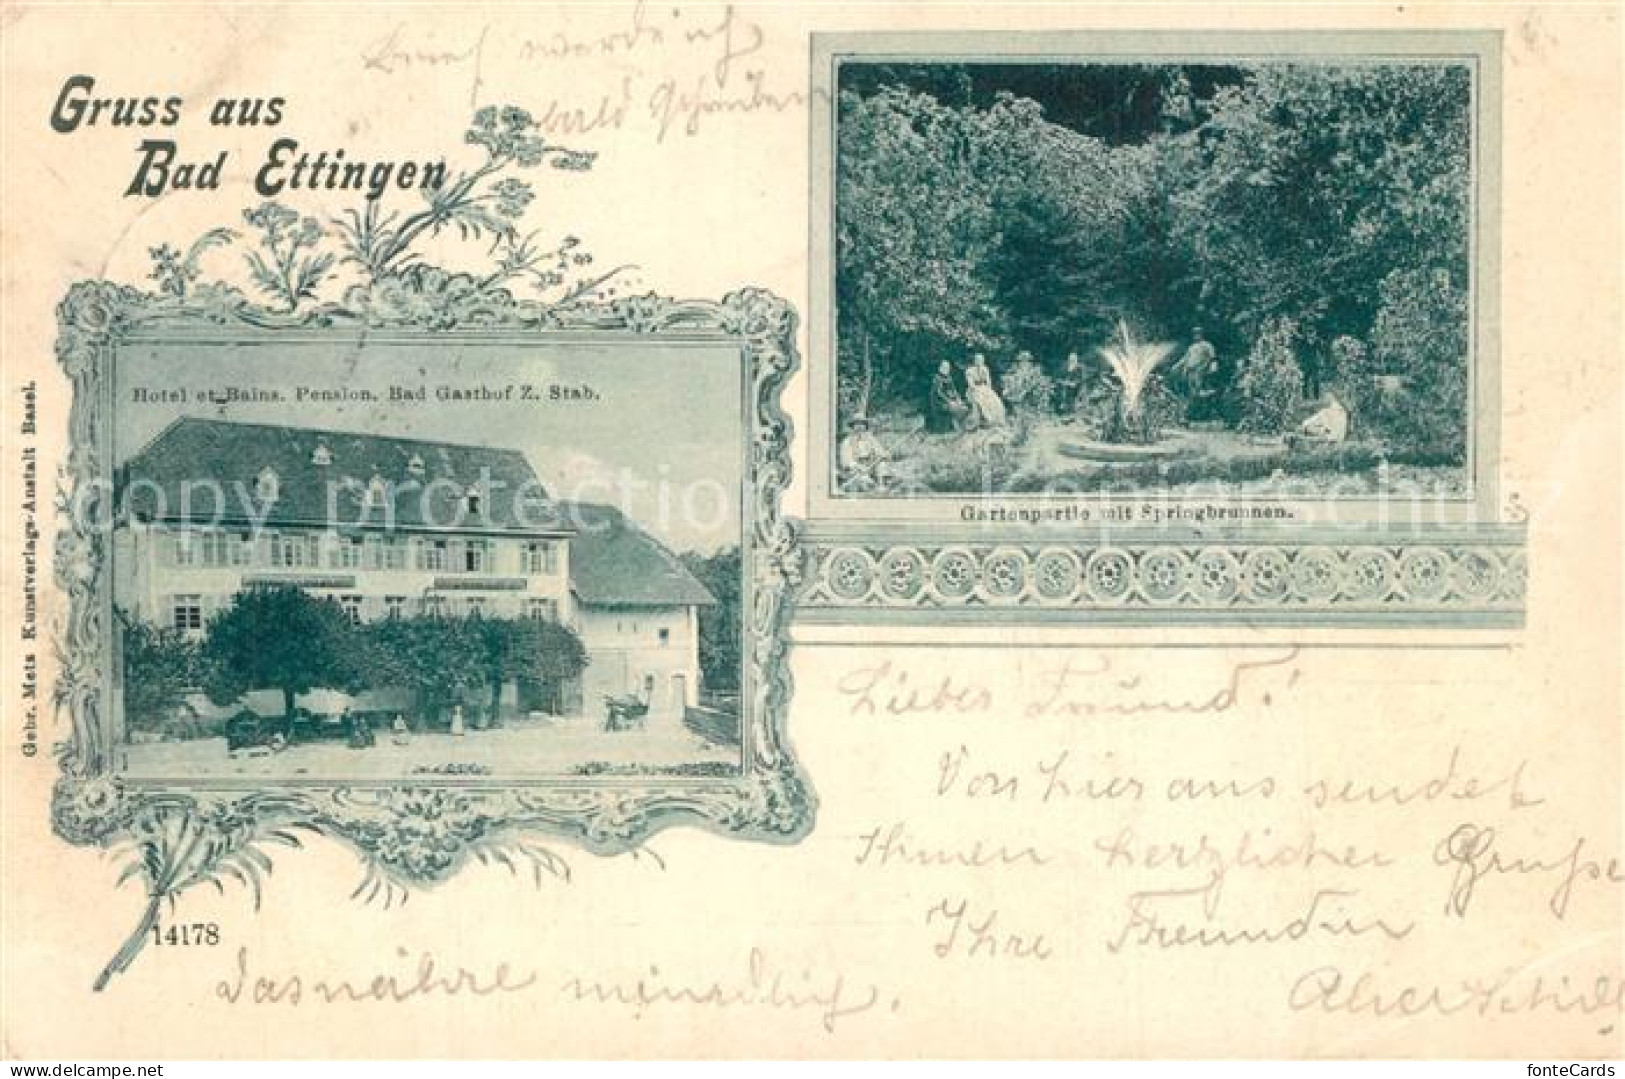 Brief werde ich
bald schreiben
Gruss aus
Bad Ettingen
Hotel et Bains. Pension. Bad Gasthof Z. Stab.
Gebr. Metz Kunstverlags-Anstalt Basel.
14178
Gartenpartie mit Springbrunnen.
copy protection Kopierschutz
Lieber Freund!
Von hier aus sendet
Ihnen herzlichen Grüsse
Ihre Freundin
das nähere mündlich.
www.delcampe.net
fonteCards